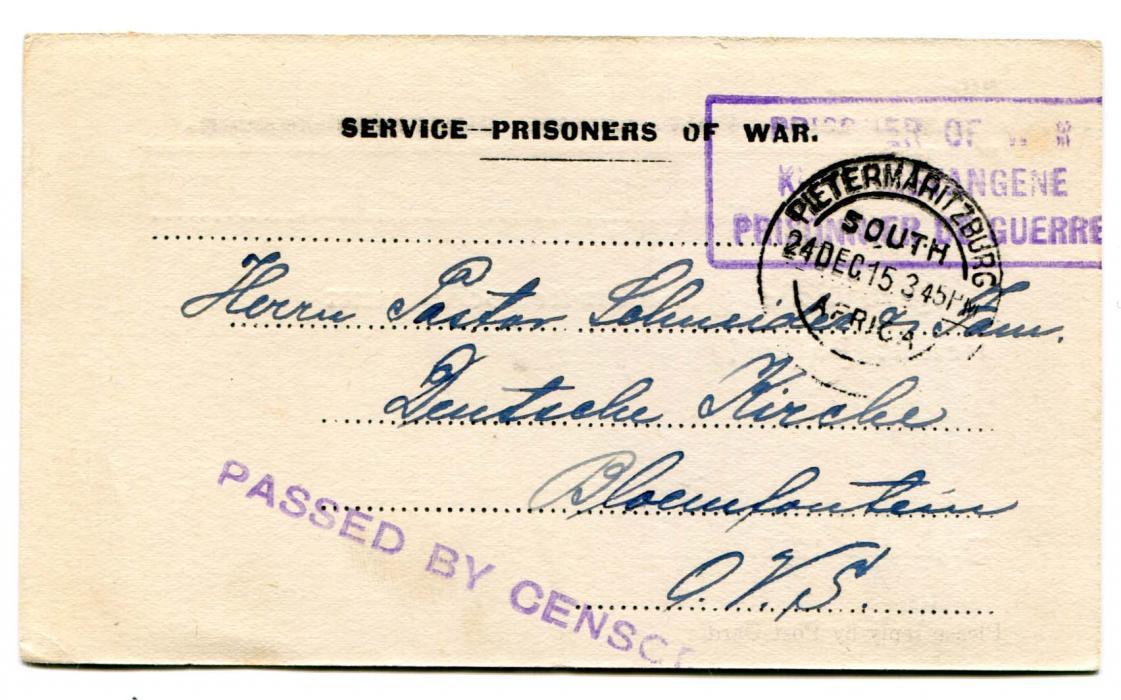 SERVICE--PRISONERS OF WAR.
PRISONER OF
KRIEGSGEFANGENE
PRISONNIER DE GUERRE
PIETERMARITZBURG
SOUTH
24 DEC. 15. 3 45 PM
AFRICA
Herrn Pastor Schneider & Fam.
Deutsche Kirche
Bloemfontein
O.V.S.
PASSED BY CENSOR
Please reply by Post Card.